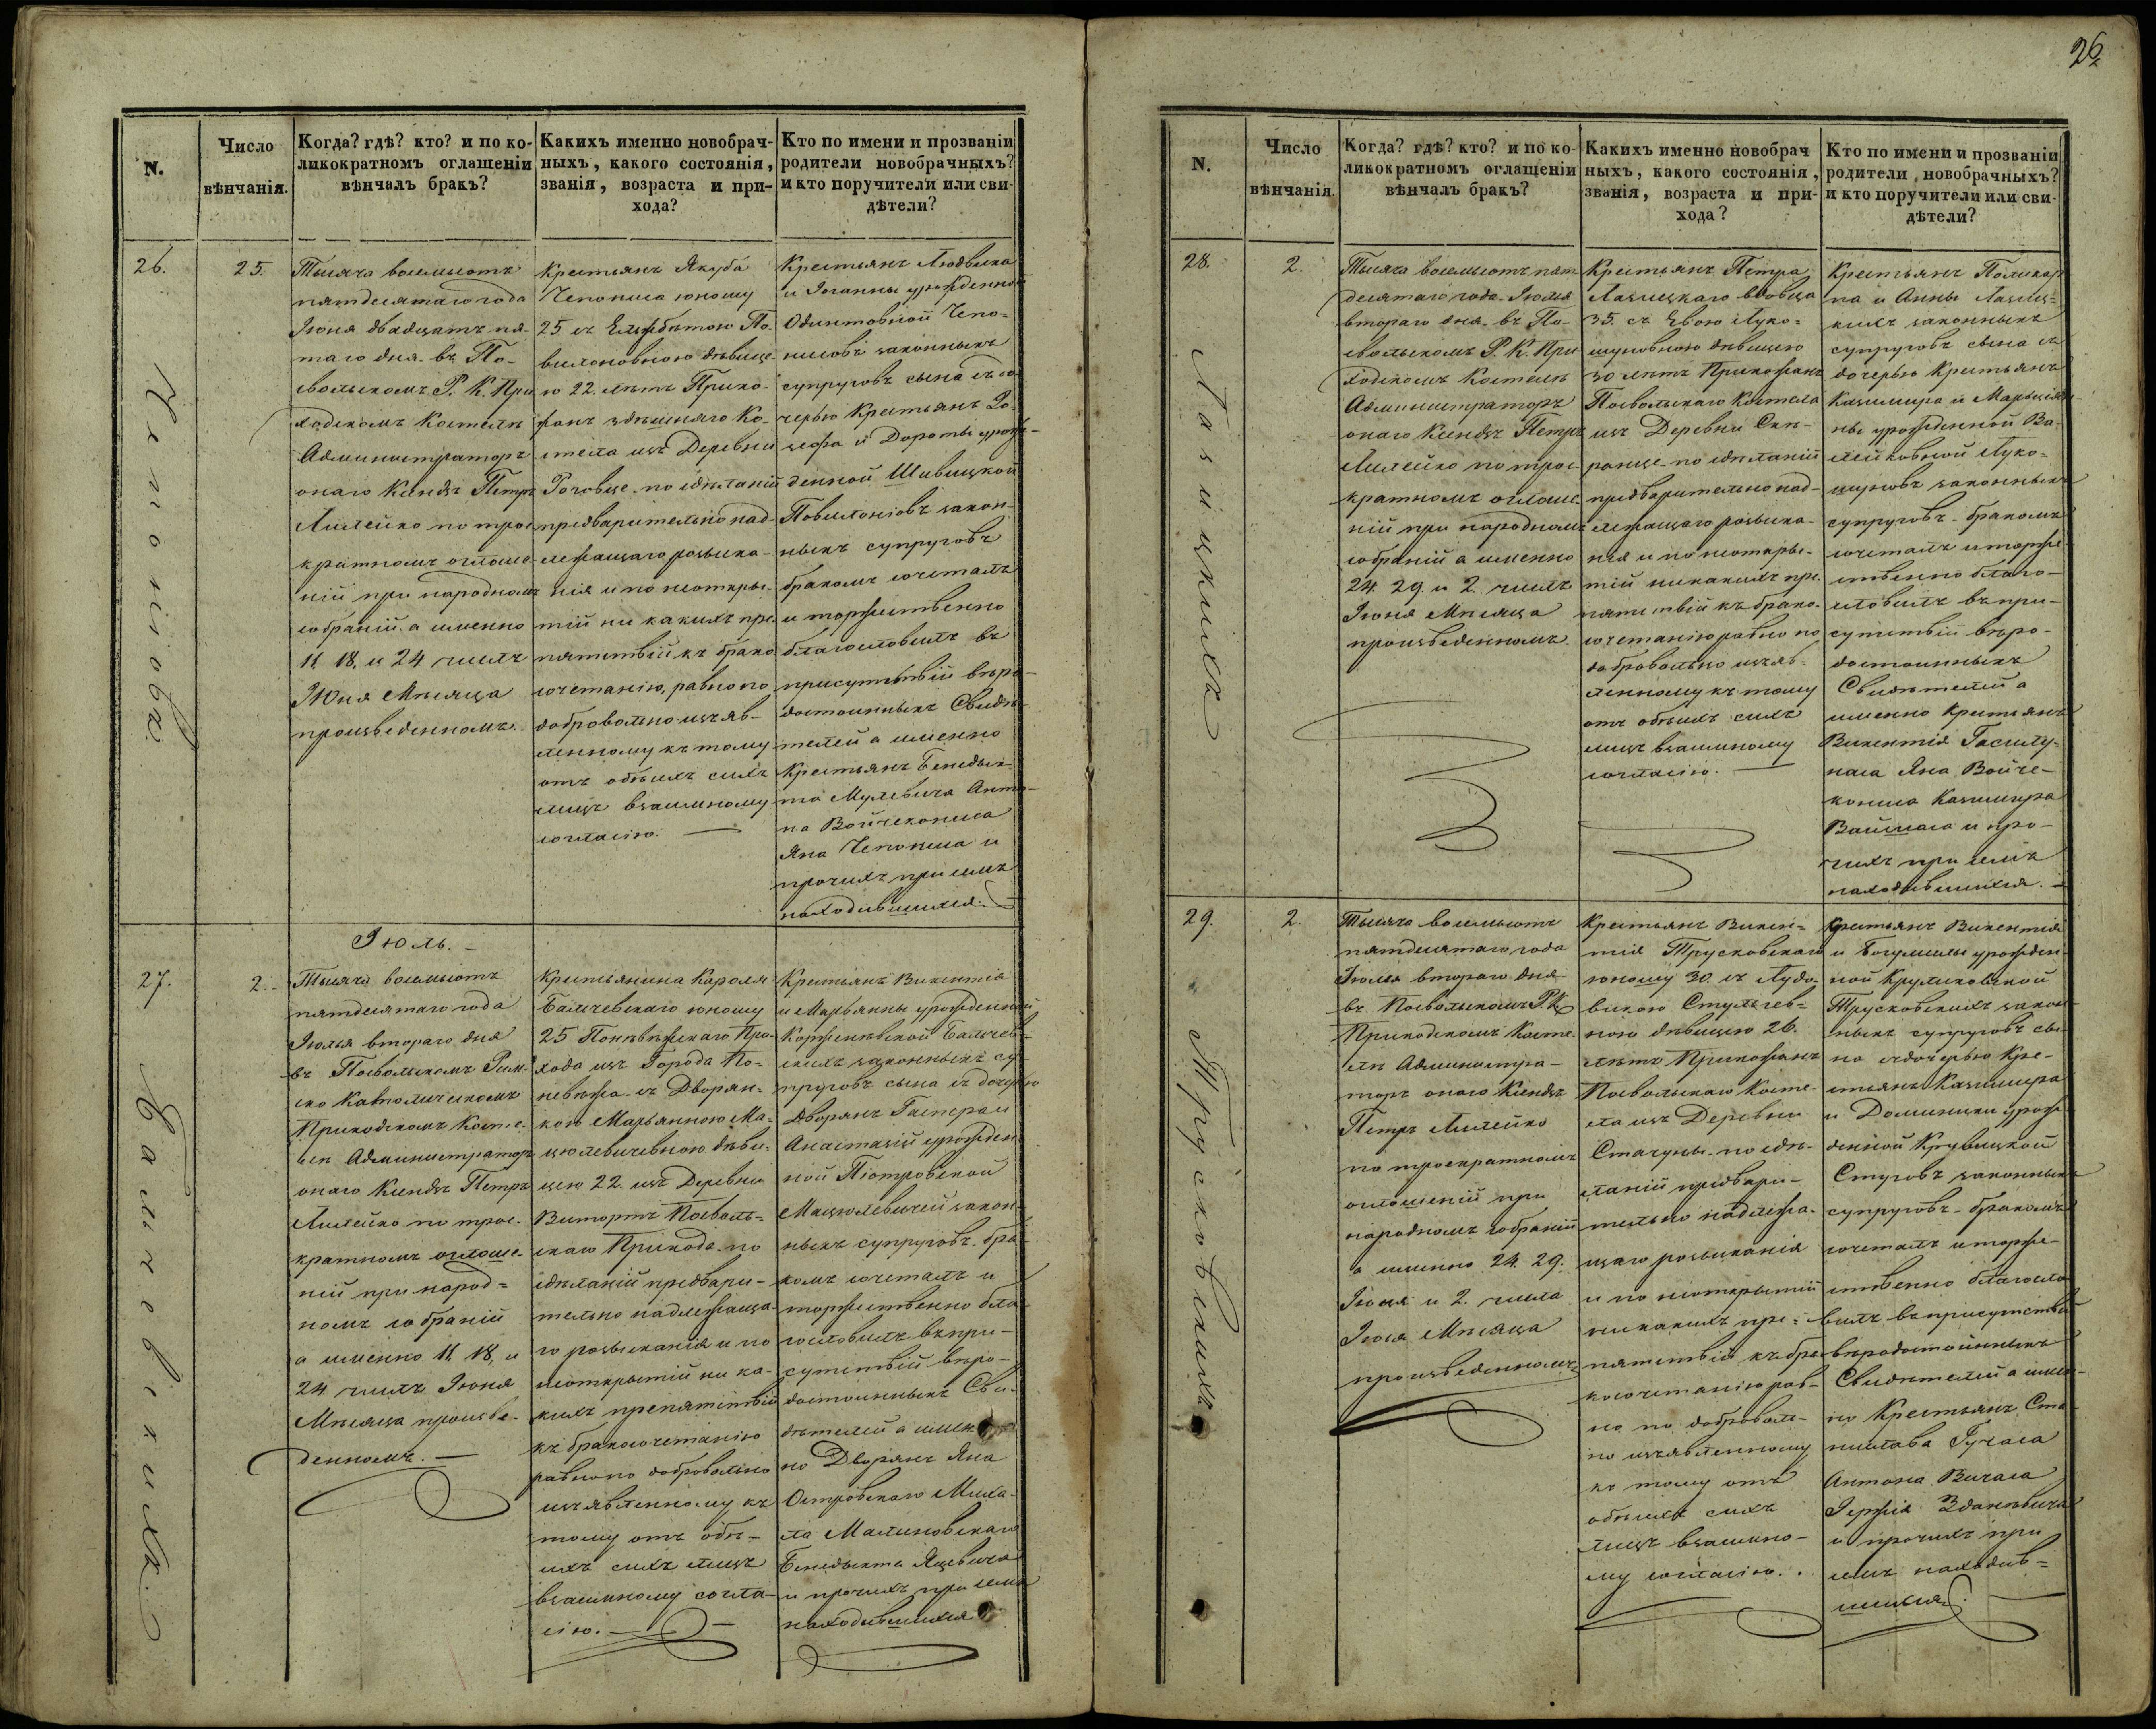 26.
N.
Число
вѣнчанія.
Когда? гдѣ? кто? и по ко-
ликократномъ оглашеніи
вѣнчалъ бракъ?
Какихъ именно новобрач-
ныхъ, какого состоянія,
званія, возраста и при-
хода?
Кто по имени и прозванію
родители новобрачныхъ?
и кто поручители или сви-
дѣтели?
26.
25.
Тысяча восемьсотъ
пятдесятаго года
Іюня двадцать пя-
таго дня въ По-
свольскомъ Р. К. При
ходскомъ Костелѣ
Администраторъ
онаго Ксендзъ Петръ
Лилейко по трое
кратномъ оглаше-
ніи при народномъ
собраніи а именно
11 18. и 24 числъ
Июня Мѣсяца
произведенномъ.
Крестьянъ Якуба
Чепониса юношу
25 съ Елжбѣтою По-
вилоновною дѣвице
ю 22. лѣтъ Прихо-
жанъ здѣшняго Ко-
стела изъ Деревни
по сдѣланіи
предварительно над-
лежащаго розыска-
нія и по неоткры-
тіи ни какихъ пре
пятствій къ брако
сочетанію, равно по
добровольно изъяв-
ленному къ тому
отъ обѣихъ сихъ
лицъ взаимному
согласію. —
Крестьянъ Людвика
и Іоанны урожденной
Одинтовной Чепо-
нисовъ законныхъ
супруговъ сына съ до
черью Крестьянъ Іо-
зефа и Дороты урож-
денной Шивицкой
Повилонісвъ закон-
ныхъ супруговъ
бракомъ сочеталъ
и торжественно
благословилъ въ
присутствіи вѣро-
достоинныхъ Свидѣ-
телей а именно
Крестьянъ Бенедык-
та Мулевича Анто-
на Войчекониса
Яна Чепониса и
прочихъ при семъ
находившихся.
Чепонісовъ
Іюль. —
27.
2.
Тысяча восемьсотъ
пятдесятаго года
Іюля втораго дня
въ Посвольскомъ Рим-
ско Католическомъ
Приходскомъ Косте-
лѣ Администраторъ
онаго Ксендзъ Петръ
Лилейко по трое-
кратномъ оглаше-
ніи при народ=
номъ собраніи
а именно 11, 18, и
24 числъ Іюня
Мѣсяца произве-
денномъ. —
Крестьянина Кароля
Балчевскаго юношу
25 Поневѣжскаго При-
хода изъ Города По-
невѣжа съ Дворян=
кою Марьянною Ма-
цюлевичевною дѣви-
цею 22 изъ Деревни
Виторть Посволь=
скаго Прихода по
сдѣланіи предвари-
тельно надлежаща-
го розысканія и по
неоткрытіи ни ка-
кихъ препятствій
къ бракосочетанію
равно по добровольно
изъявленному къ
тому отъ обѣ-
ихъ сихъ лицъ
взаимному согла-
сію. —
Крестьянъ Викентіа
и Марьянны урожденной
Корженѣвской Балчев-
скихъ законныхъ су-
пруговъ сына съ дочерью
Дворянъ Гаспера и
Анастазіи урожден
ной Піотровской
Мацюлевичей закон-
ныхъ супруговъ бра-
комъ сочеталъ и
торжественно бла-
гословилъ въ при-
сутствіи вѣро-
достоинныхъ Сви-
дѣтелей а имен
но Дворянъ Яна
Островскаго Миха-
ла Малиновскаго
Бенедыкта Яцевича
и прочихъ при семъ
находившихся
Балчевскихъ
N.
Число
вѣнчанія.
Когда? гдѣ? кто? и по ко-
ликократномъ оглашеніи
вѣнчалъ бракъ?
Какихъ именно новобрач
ныхъ, какого состоянія,
званія, возраста и при-
хода?
Кто по имени и прозванію
родители новобрачныхъ?
и кто поручители или сви-
дѣтели?
28.
2.
Тысяча восемьсотъ пят
десятаго года Іюля
втораго дня въ По-
свольскомъ Р. К. При
ходскомъ Костелѣ
Администраторъ
онаго Ксендзъ Петръ
Лилейко по трое-
кратномъ оглаше-
ніи при народномъ
собраніи а именно
24. 29. и 2. числъ
Іюня Мѣсяца
произведенномъ.
Крестьянъ Петра
Лазицкаго вдовца
35. съ Евою Луко=
шуновною дѣвицею
30 лѣтъ Прихожанъ
Посвольскаго Костела
изъ Деревни Скѣ-
по сдѣланіи
предварительно над-
лежащаго розыска-
нія и по неоткры-
тіи никакихъ пре-
пятствій къ брако-
сочетанію равно по
добровольно изъяв-
ленному къ тому
отъ обѣихъ сихъ
лицъ взаимному
согласію. —
Крестьянъ Поликар
па и Анны Лазиц=
кихъ законныхъ
супруговъ сына съ
дочерью Крестьянъ
Казимира и Марьян
ны урожденной Ва-
лейковной Луко=
шуновъ законныхъ
супруговъ бракомъ
сочеталъ и торже-
ственно благо-
словилъ въ при-
сутствіи вѣро-
достоинныхъ
Свидѣтелей а
именно Крестьянъ
Викентія
Яна Войче-
кониса Казимира
и про-
чихъ при семъ
находившихся. —
Лазицкихъ
29.
2.
Тысяча восемьсотъ
пятдесятаго года
Іюля втораго дня
въ Посвольскомъ Р. К.
Приходскомъ Косте-
лѣ Администра-
торъ онаго Ксендзъ
Петръ Лилейко
по троекратномъ
оглашеніи при
народномъ собраніи
а именно 24. 29.
Іюня и 2. числа
Іюля Мѣсяца
произведенномъ
Крестьянъ Викен=
тія Трусковскаго
юношу 30. съ Лудо-
викою
ною дѣвицею 26.
лѣтъ Прихожанъ
Посвольскаго Косте-
ла изъ Деревни
Стачуны по сдѣ-
ланіи предвари-
тельно надлежа-
щаго розысканія
и по неоткрытіи
никакихъ пре=
пятствій къ бра
косочетанію рав-
но по доброволь-
но изъявленному
къ тому отъ
обѣихъ сихъ
лицъ взаимно-
му согласію.
Крестьянъ Викентія
и Богумилы урожден
ной Круликовской
Трусковскихъ закон-
ныхъ супруговъ сы-
на съ дочерью Кре-
стьянъ Казимира
и Доминики урож-
денной Крувицкой
законныхъ
супруговъ бракомъ
сочеталъ и торже-
ственно благосло
вилъ въ присутствіи
вѣродостойнныхъ
Свидѣтелей а имен
но Крестьянъ Ста-
нислава Гучаса
Антона Вичаса
и прочихъ при
семъ находив=
шихся.
Трусковскихъ